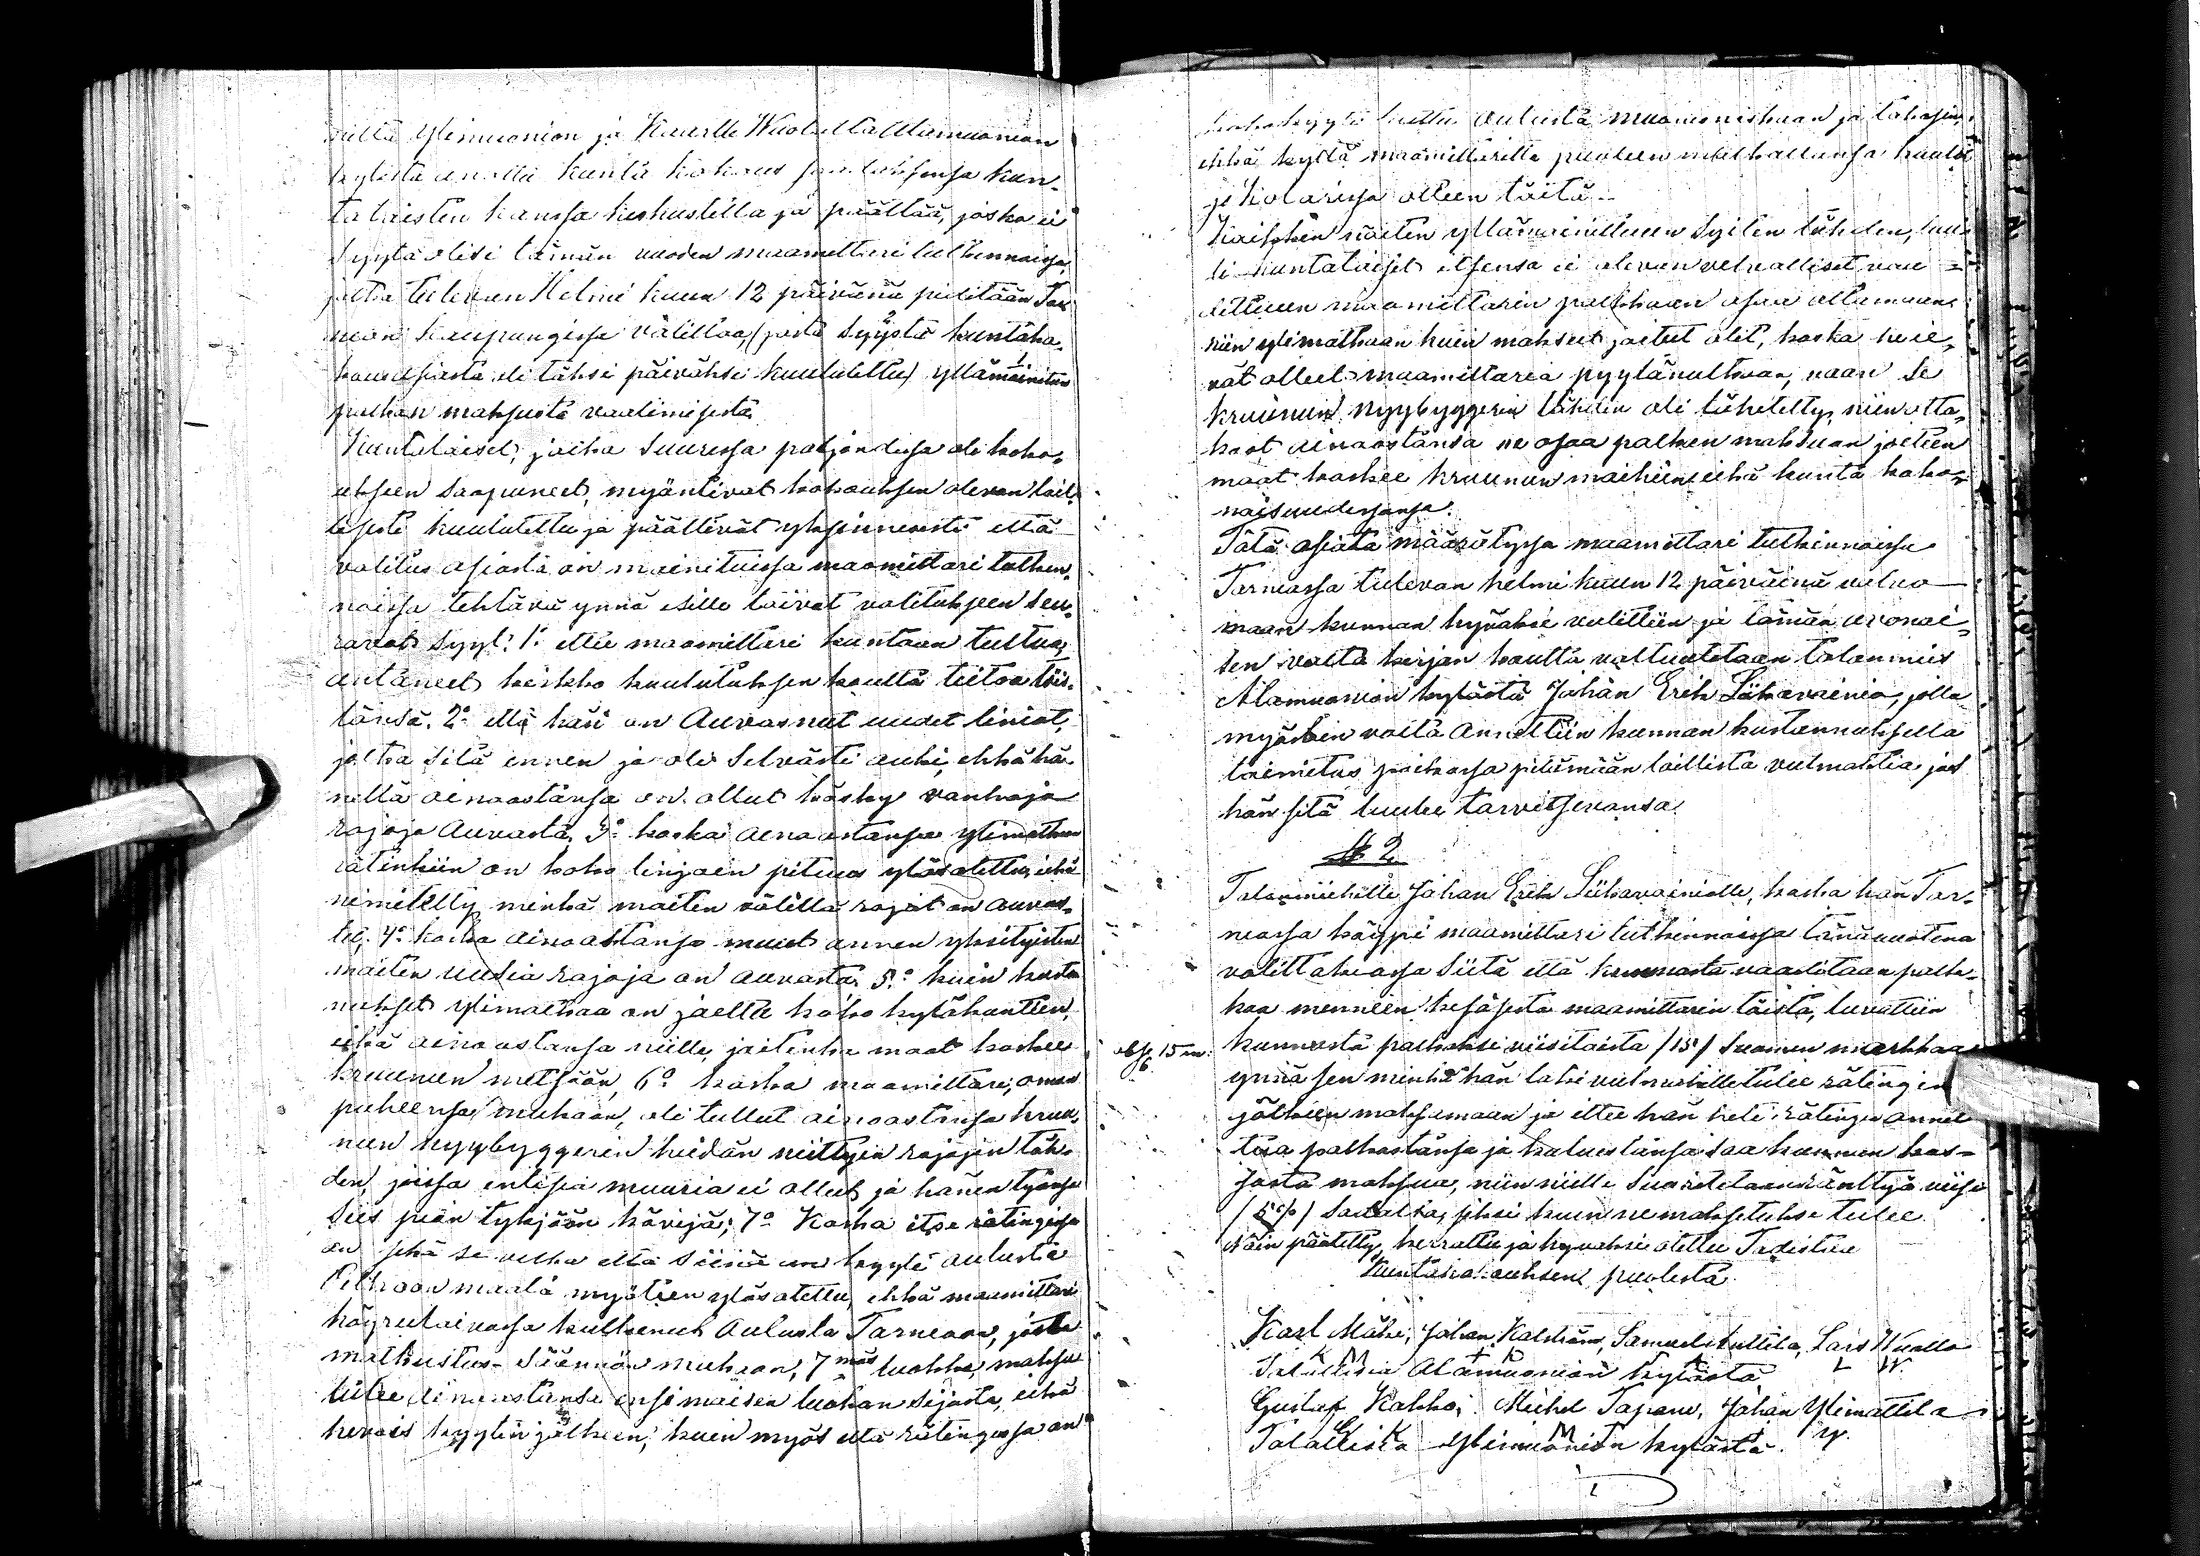 niltä Ylimuonion ja Kaarlle Wuolulta Alamuonion
kylästä anottu kunta kokous saadaksensa kun-
talaisten kanssa keskustella ja päättää, joska ei
syytä olisi tämän vuoden maamittari tutkinnaissa,
jotka tulevan Helmi kuun 12 päivänä pidetään Tor
nion kaupungissa välittaa, (josta syystä kuntako-
kous asiasta oli täksi päiväksi kuulutettu) yllämainitun
palkan maksusta vaatimisesta
Kuntalaiset, jotka suuressa paljoudessa oli koko-
ukseen saapuneet, myöntivat kokouksen olevan lail-
lisesti kuulutettu ja päättivät yksinmielisesti että
valitus asiasta on mainituissa maamittari tutkin-
naissa tehtävä ynnä esille tuovat valitukseen seu-
ravat syyt: 1: ettei maamittari kuntaan tultua,
antaneet kirkko kuulutuksen kautta tietoa töis-
tänsä. 2:o että hän on Auvasnut uudet liniat,
jotka sitä ennen jo oli selvästi auki, ehkä hä-
nellä ainoastansa on ollut käsky vanhoja
rajoja Auvasta, 3:o koska ainoastansa ylimalkaan
rätinkiin on koko linjain pituus ylösotettu, eikä
nimitetty minkä maiten välillä rajat on auvas-
tu. 4:o koska ainoastansa muut annen yksityisten
maiten uusia rajoja on auvastu. 5:o kuin kusta
nukset ylimalkaa on jaettu koko kyläkuntien,
eikä ainoastansa niille, joitenka maat koskee
kruunun metsään, 6:o koska maamittari, oman
puheensa mukaan, oli tullut ainoastansa kruu-
nun nyybyggerin heidän niittyin rajojen täh-
den joissa entisiä muuria ei ollut ja hänen työnsä
siis pian tyhjään kävijä; 7:o Koska itse rätingissä
on sekä se velka että siinä on kyyti Oulusta
maata myötien ylösotettu, ehkä maamittari
höyrulaivassa kulkenut Oulusta Tornioon, josta
matkustus-säännön mukaan, 7mäs luokka, maksu
tulee ainoastansa ensimäisen luokan sijasta, eikä
hevois kyytin jälkeen, kuin myös että rätingissä on
koko kyyti luettu Oulusta muonioniskaan ja takasin,
ehkä kyllä maamittarilla puoleen matkallansa kuului
ja Kolarissa olleen töitä.
Kaikkein näiten yllämainittuen syiten tähden, luu-
li kuntalaiset itsensä ei olevan velvolliset vaa-
dittuun maamittarin palkkaan osaa ottamaan
niin ylimalkaan kuin maksut jaetut olit, koska he ei-
vät olleet maamittaria pyytänytkään, vaan se
kruunun nyybyggerin tähden oli lähetetty, niin otta-
koot ainoastansa ne osaa palkan maksuun joitten
maat koskee kruunun maihin eikä kunta koko-
naisuudessansa.
Tätä asiata määrätyssä maamittari tutkinnaissa
Torniossa tulevan helmi kuun 12 päivänä valvo
maan kunnan hyväksi valittiin ja tämän avonai-
sen valta kirjan kautta valtuutetaan talonmies
Alamuonion kylästä Johan Erik Liikavainio, jolla
myöskin valta Annettiin kunnan kustannuksella
toimitus paikassa pitämään laillista vulmahtia jos
hän sitä luulee tarvitsevansa.
§ 2
Talonmiehelle Johan Erik Liikavainiolle, koska hän Tor-
niossa käyppi maamittari tutkinnaissa tänävuotena
valittamassa siitä että kunnasta vaaditaan palk-
kaa mennein kesäsestä maamittarin töistä, luvattiin
kunnasta palkaksi viisitoista /15/ Suomen markkaa
ynnä sen minkä hän laki vulmahtille tulee rätingin
jälkeen maksamaan ja ettei hän heti rätingin annet
tua palkastansa ja kuluistansa saa kunnan kas-
sasta maksua, niin niille suoritetaan ränttyä viisi
/5 %/ sadalta, siksi kuin ne maksetuksi tulee.
Näin päätetty, kerrattu ja hyväksi otettu Todistaa
Kuntakokouksen puolesta
obs. 15 m:
Karl Mäki, Johan Kalström, Samuel Kultila, Lars Wuollo
K M + K L W
Talollisia Alamuonion kylästä
Gustaf Kakko, Mickel Tapani, Johan Ylimattila
G K M Y
Talollisia Ylimuonion kylästä.